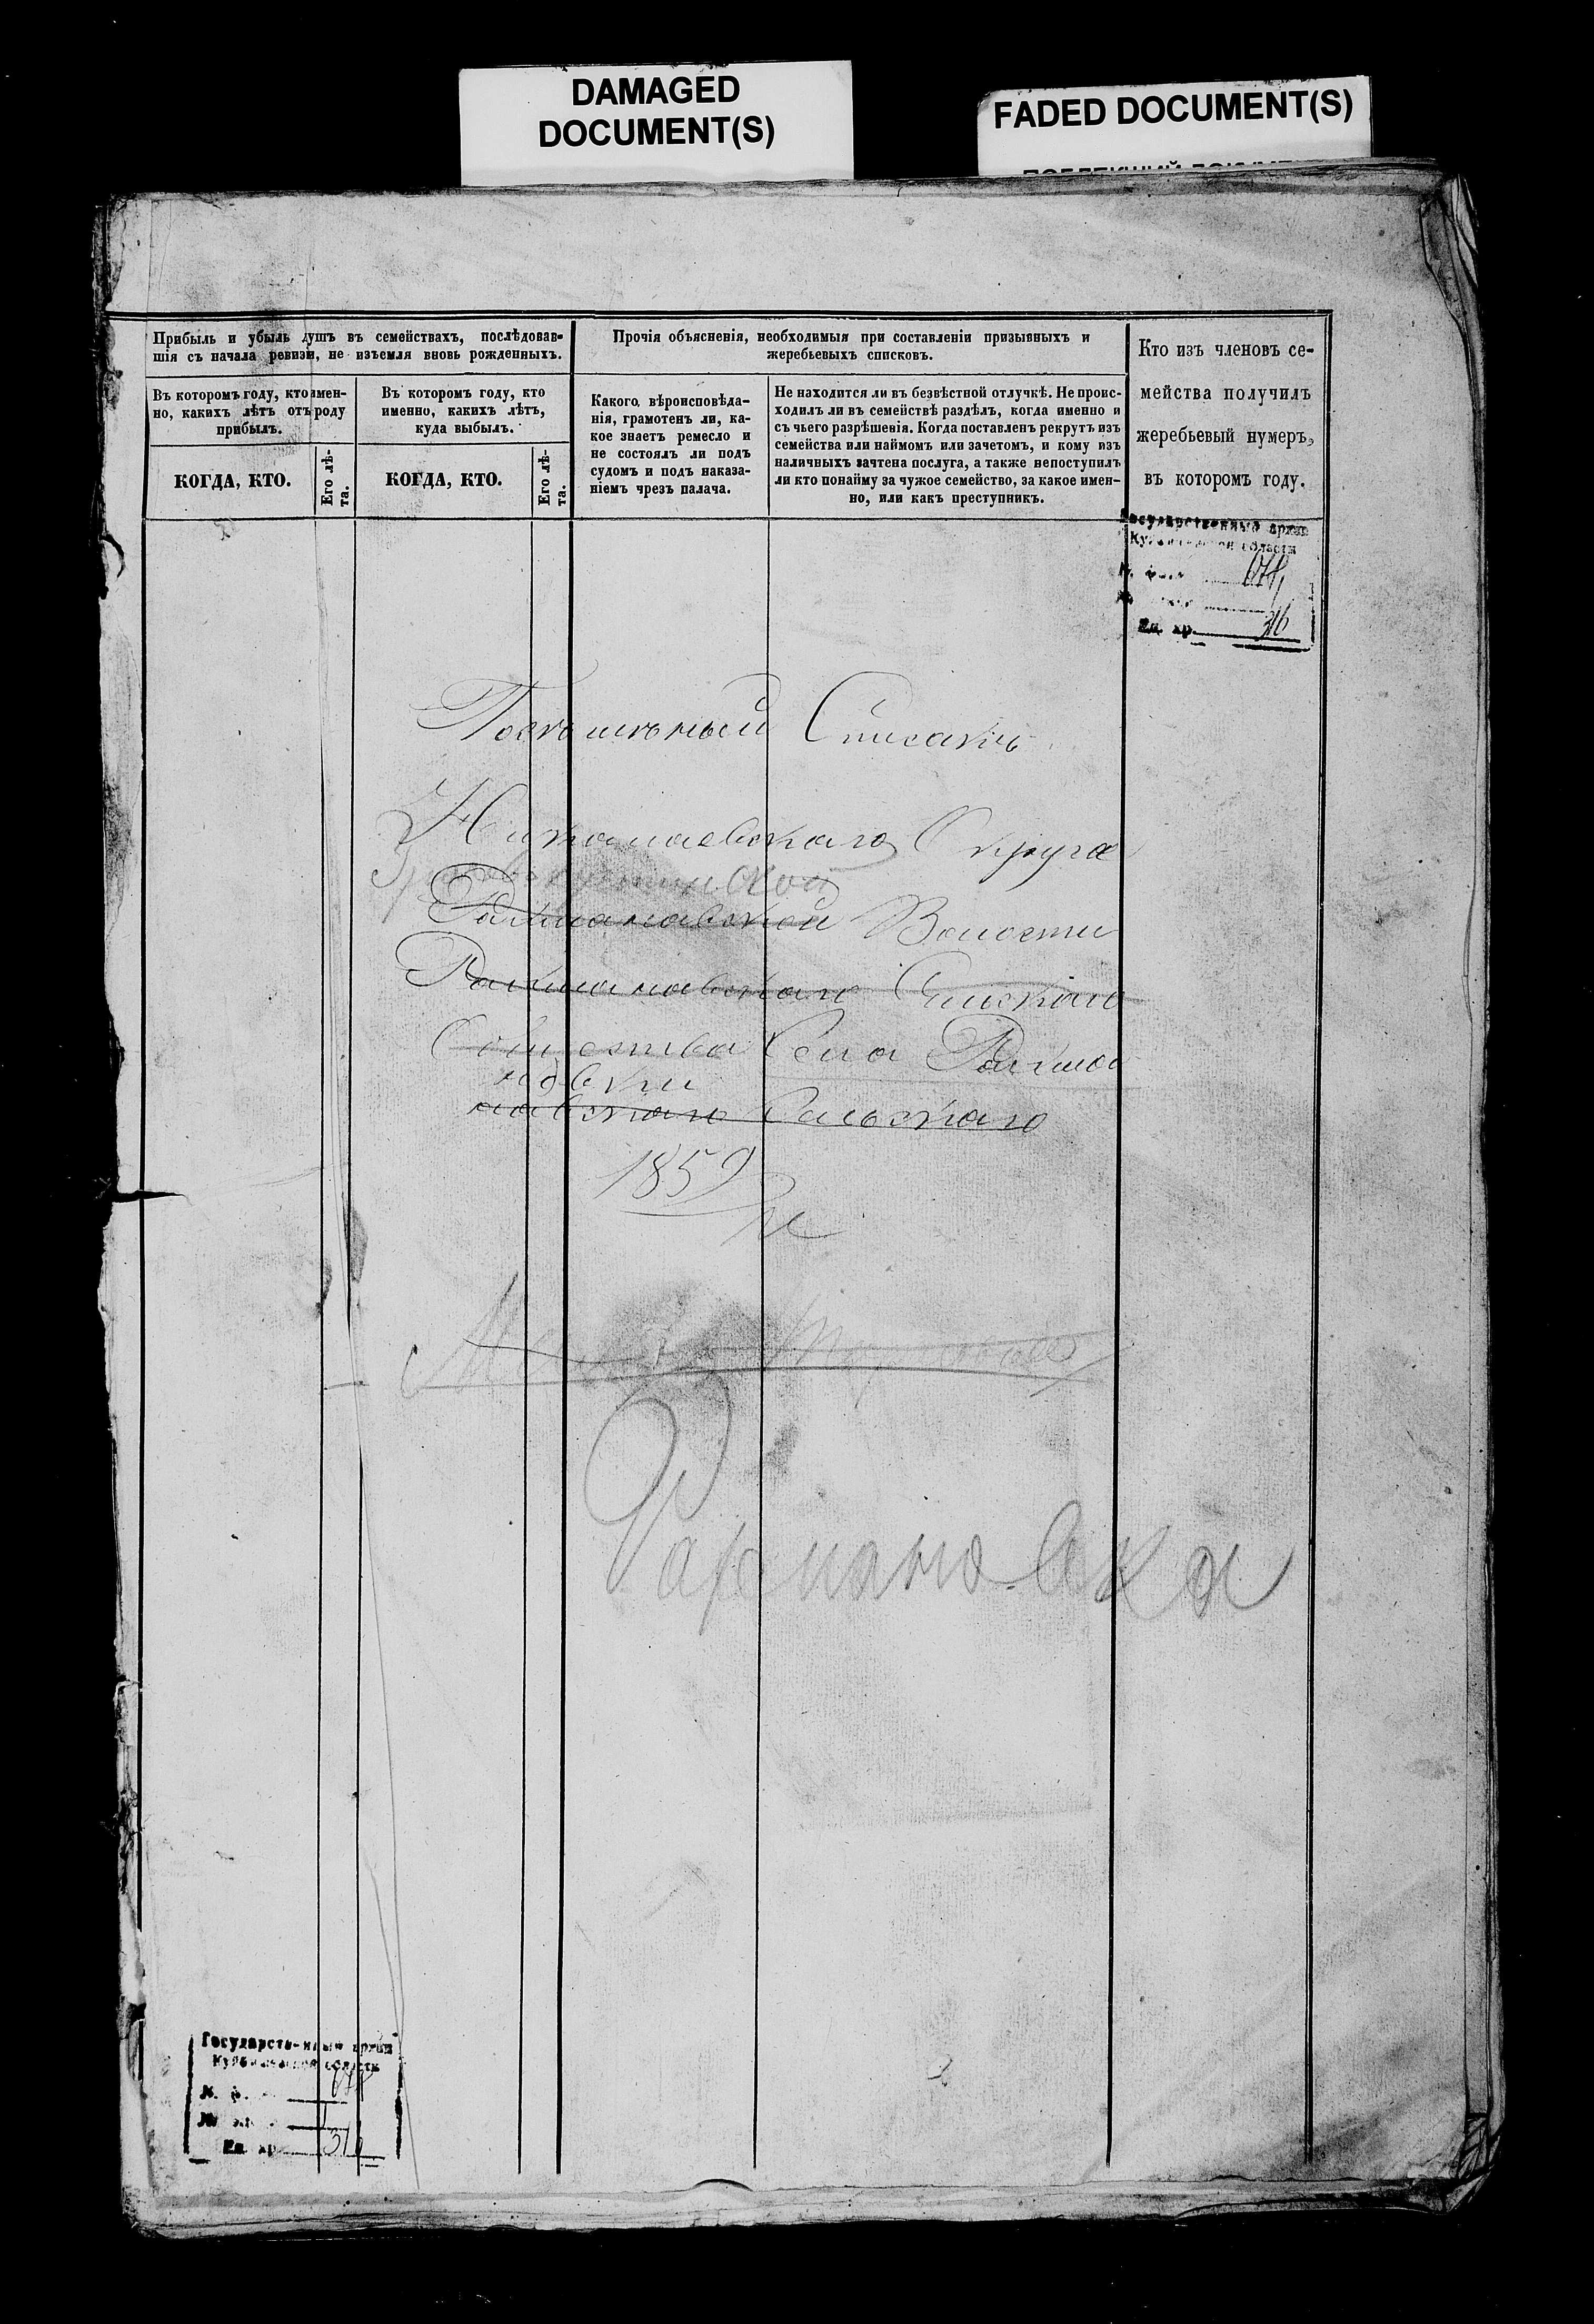 DAMAGED
DOCUMENT(S)
FADED DOCUMENT(S)
Прибыль и убыль душъ въ семействахъ, послѣдовав-
шія съ начала ревизи, не изъемля вновь рожденныхъ.
Прочія объясненія, необходимыя при составленіи призывныхъ и
жеребьевыхъ списковъ.
Кто изъ членовъ се-
мейства получилъ
жеребьевый нумеръ,
въ которомъ году.
Въ которомъ году, кто имен-
но, какихъ лѣтъ отъ роду
прибылъ.
Въ которомъ году, кто
именно, какихъ лѣтъ,
куда выбылъ.
Какого вѣроисповѣда-
нія, грамотенъ ли, ка-
кое знаетъ ремесло и
не состоялъ ли подъ
судомъ и подъ наказа-
ніемъ чрезъ палача.
Не находится ли въ безвѣстной отлучкѣ. Не проис-
ходилъ ли въ семействѣ раздѣлъ, когда именно и
съ чьего разрѣшенія. Когда поставленъ рекрутъ изъ
семейства или наймомъ или зачетомъ, и кому изъ
наличныхъ зачтена послуга, а также непоступилъ
ли кто понайму за чужое семейство, за какое имен-
но, или какъ преступникъ.
КОГДА, КТО.
Его лѣ-
та.
КОГДА, КТО.
Его лѣ-
та.
Государственный архив
Куйбышевской области
Ед. хр. 316
Списакъ
Никалаевскаго Округа
Волости
Рахмановскаго Сельскаго
Общества Села Рахма
новки
навскаго Сельскаго
1859
Рахмановка
Государственный архив
Куйбышевской области
Ед. хр. 316